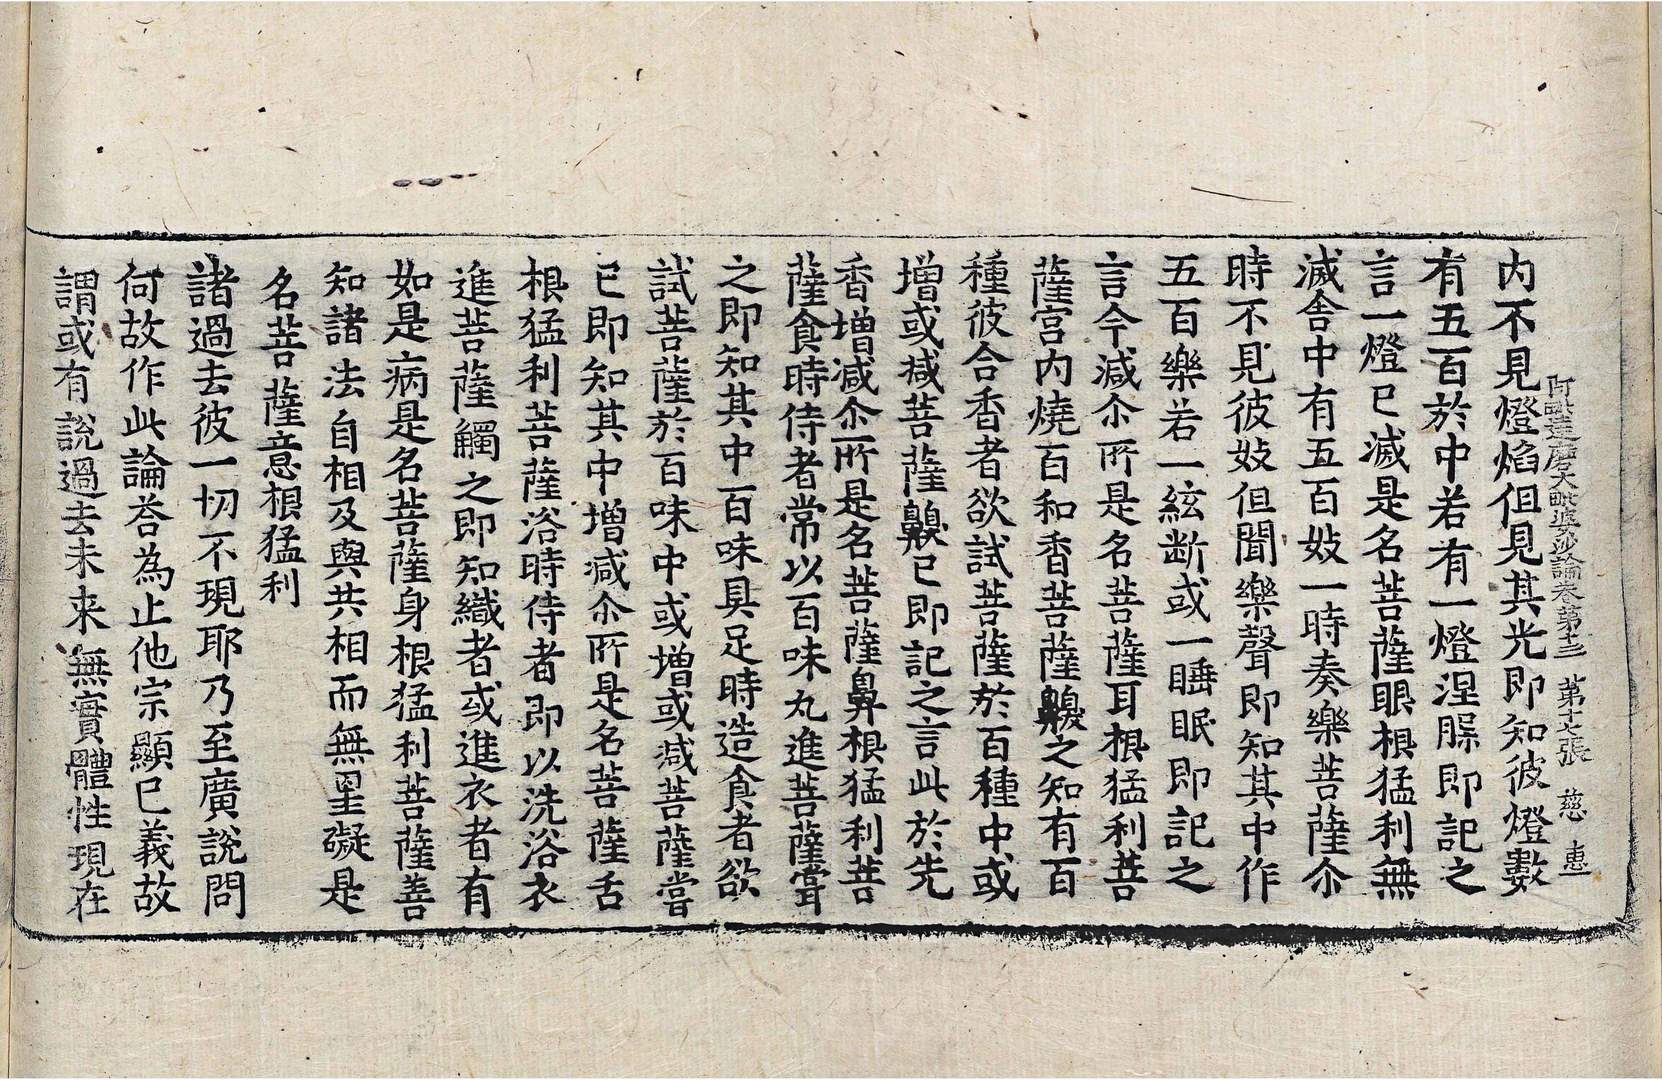 阿毗達磨大毗婆沙論卷第十三 第十七張 慈 惠
内不見燈焰但見其光即知彼燈數
有五百於中若有一燈涅槃即記之
言一燈已滅是名菩薩眼根猛利無
滅舍中有五百妓一時奏樂菩薩尒
時不見彼妓但聞樂聲即知其中作
五百樂若一絃断或一睡眠即記之
言今減尒所是名菩薩耳根猛利菩
薩宫内燒百和香菩薩齅之知有百
種彼合香者欲試菩薩於百種中或
增或減菩薩齅已即記之言此於先
香增減尒所是名菩薩鼻根猛利菩
薩食時侍者常以百味丸進菩薩甞
之即知其中百味具足時造食者欲
試菩薩於百味中或增或減菩薩甞
已即知其中增減尒所是名菩薩舌
根猛利菩薩浴時侍者即以洗浴衣
進菩薩觸之即知織者或進衣者有
如是病是名菩薩身根猛利菩薩善
知諸法自相及與共相而無罣礙是
名菩薩意根猛利
諸過去彼一切不現耶乃至廣說問
何故作此論荅為止他宗顯已義故
謂或有說過去未来無實體性現在